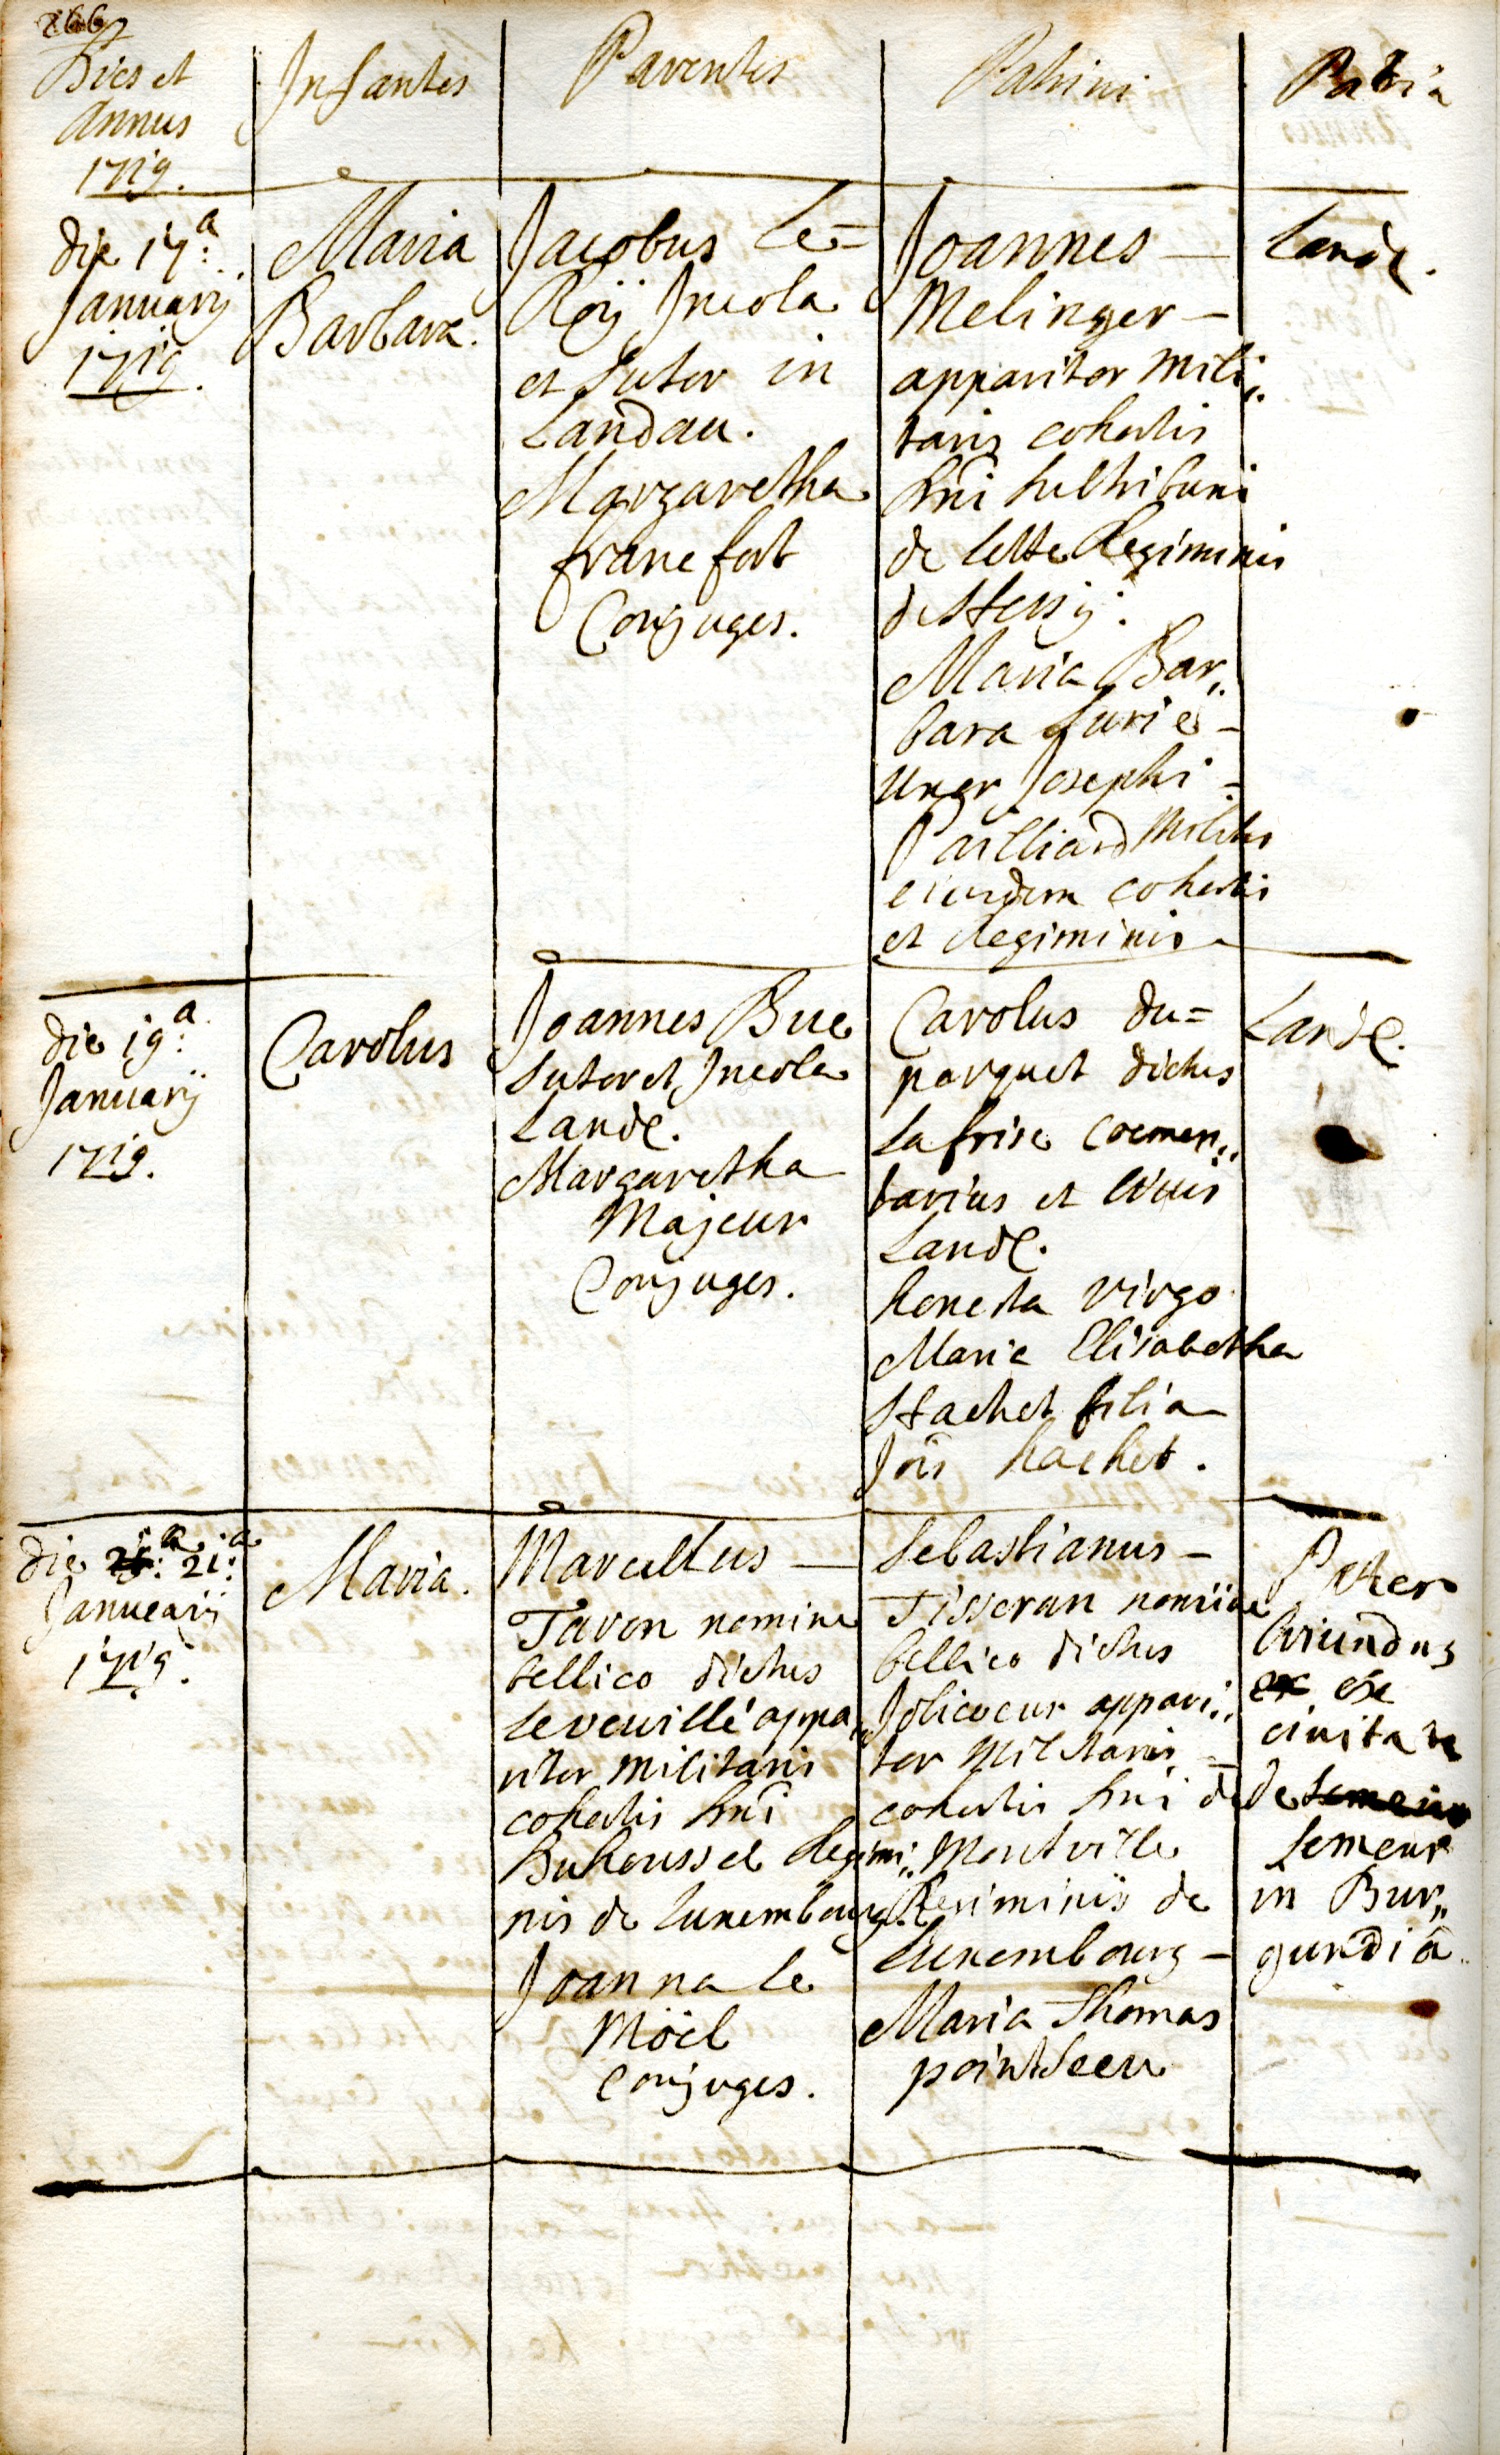 266
Dies et
Annus
1719.
Infantes
Parentes
Patrini
Patria
die 17.a
Januarij
1719.
Maria
Barbara.
Jacobus Le=
Roÿ Incola
et Sutor in
Landau.
Margaretha
francfort
Conjuges.
Joannes —
Melinger —
apparitor mili,,
taris cohortis
Dni
de Regiminis
Maria Bar,,
bara Surie —
uxor Josephi =
Pailliard militis
eiusdem cohortis
et Regiminis
Landæ.
die 19.a
Januarij
1719.
Carolus
Joannes Bue
Sutor et Incola
Landæ.
Margaretha
Majeur
Conjuges.
Carolus du=
parquet dictus
Lafrise coemen,,
tarius et civis
Landæ.
honesta virgo
Maria Elisabetha
Hachet filia
Jois hachet.
Landæ.
die 21.a
Januarij
1719.
Maria.
Marcellus —
Tavon nomine
bellico dictus
Leveuillé appa,,
ritor militaris
cohortis Dni
Buhoussel Regimi,,
nis de Luxembourg.
Joanna le
Möel
conjuges.
Sebastianus —
Tisseran nomine
bellico dictus
Jolicoeur appari,,
tor militaris =
cohortis Dni de
Montville
Regiminis de
Luxembourg —
Maria Thomas
pointdeeu
Pater
Oriundus
ex
civitate
de
Semeur
in Bur,,
gundiâ.